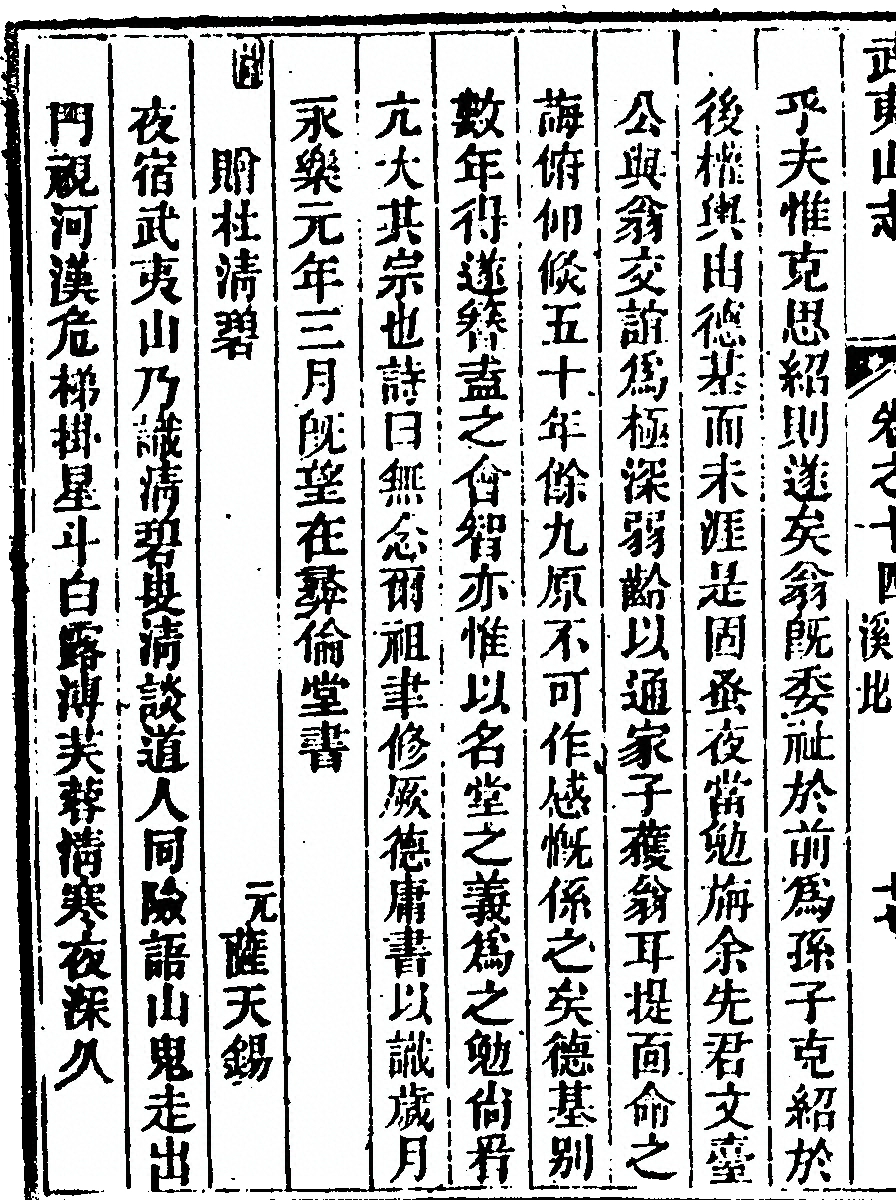 武夷山志 卷之十四 溪北 十七
乎夫惟克思紹則遂矣翁旣委祉於前爲孫子克紹於
後權輿由德基而未涯是固蚤夜當勉旃余先君文臺
公與翁交誼爲極深弱齡以通家子獲翁耳提面命之
誨俯仰倐五十年餘九原不可作感慨係之矣德基别
數年得遂簪盍之會智亦惟以名堂之義爲之勉尙君
亢大其宗也詩曰無念爾祖聿修厥德庸書以識歲月
永樂元年三月旣望在彝倫堂書
贈杜淸碧
元薩天錫
夜宿武夷山乃識淸碧叟淸談道人同險語山鬼走出
門視河漢危梯掛星斗白露溥芙蓉情寒夜深久